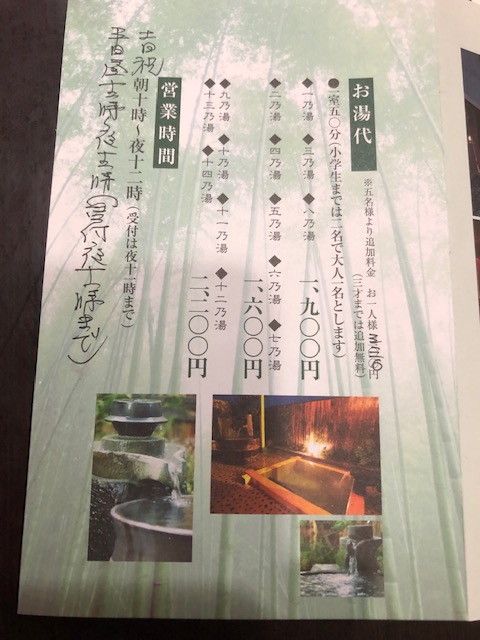 お湯代
※五名様より追加料金 お一人様 円
(三才までは追加無料)
●一室五〇分(小学生までは二名で大人一名とします)
◆一乃湯 ◆三乃湯 ◆八乃湯 一、九〇〇円
◆二乃湯 ◆四乃湯 ◆五乃湯 ◆六乃湯 ◆七乃湯
一、六〇〇円
◆九乃湯 ◆十乃湯 ◆十一乃湯 ◆十二乃湯
◆十三乃湯 ◆十四乃湯 二、二〇〇円
営業時間
土日祝 朝十時~夜十二時(受付は夜十一時まで)
平日 ~夜 時(受付夜十一時まで)